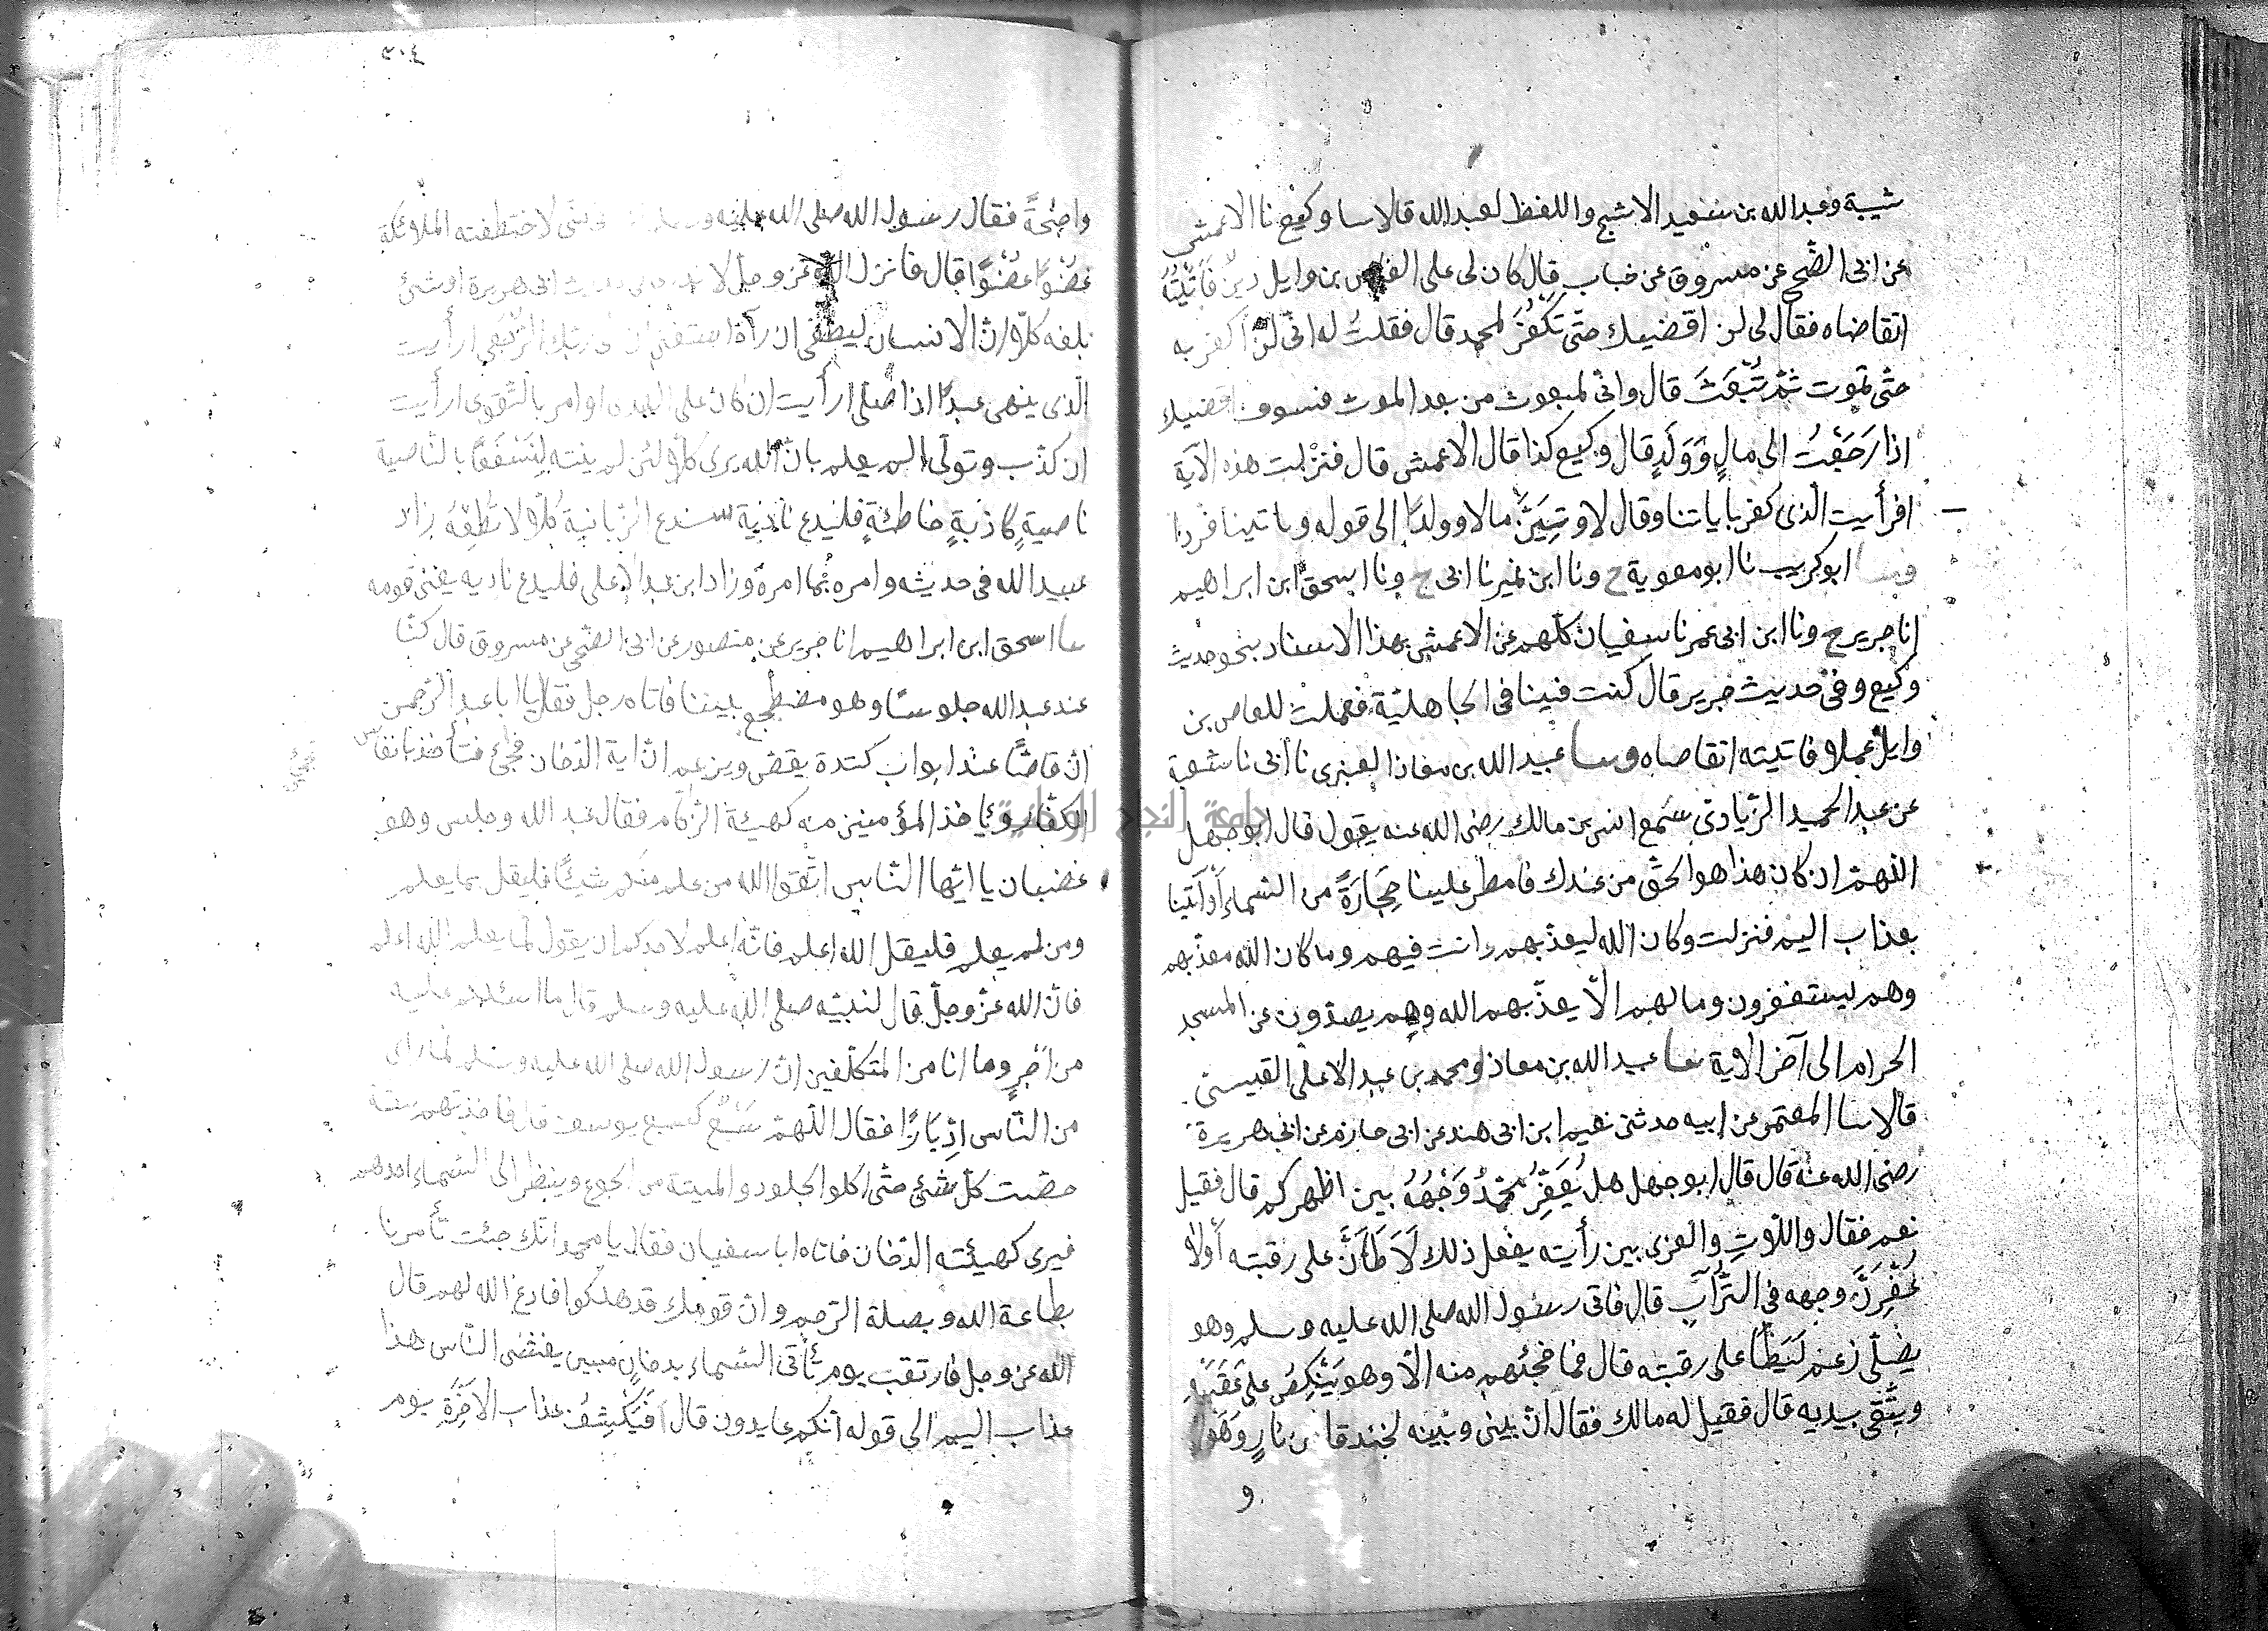 شيبة وعبد الله بن سعيد الاشج واللفظ لعبد الله قالا نا وكيع نا الاعمش
عن ابى الضحى عن مسروق عن خباب قال كان لى على العاص بن وايل دين فاتيته
اتقاضاه فقال لى لن اقضيك حتى تكفر لمحمد قال فقلت له انى لن اكفر به
حتى تموت ثم تبعث قال وانى لمبعوث من بعد الموت فسوف اقضيك
اذا رجعت الى مال وولد قال وكيع كذا قال الاعمش قال فنزلت هذه الآية
افرأيت الذى كفر باياتنا وقال لاوتين مالا وولدا الى قوله وياتينا فردا
ابو كريب نا ابو معوية ح ونا ابن نمير نا ابى ح ونا اسحق ابن ابراهيم
انا جرير ح ونا ابن ابى عمر نا سفيان كلهم عن الاعمش بهذا الاسناد نحو حديث
وكيع وفى حديث جرير قال كنت فينا فى الجاهلية فعملت للعاص بن
وايل عملا فاتيته اتقاضاه ونا عبيد الله بن معاذ العنبرى نا ابى نا شعبة
عن عبد الحميد الزيادى سمع انس بن مالك رضى الله عنه يقول قال ابو جهل
اللهم ان كان هذا هو الحق من عندك فامطر علينا حجارة من السماء أو آتينا
بعذاب اليم فنزلت وكان الله ليعذبهم وانت فيهم وما كان الله معذبهم
وهم يستغفرون وما لهم الا يعذبهم الله وهم يصدون عن المسجد
الحرام الى آخر الاية نا عبيد الله بن معاذ ومحمد بن عبد الاعلى القيسى
قالا نا المعتمر عن ابيه حدثنى نعيم ابن ابى هند عن ابى حازم عن ابى هريرة
رضى الله عنه قال قال ابو جهل هل يعفر محمد وجهه بين اظهركم قال فقيل
نعم فقال واللات والعزى بين رأيته يفعل ذلك لاطأن على رقبته أولا
عفرن وجهه فى التراب قال فاتى رسول الله صلى الله عليه وسلم وهو
يصلى زعم ليطأ على رقبته قال فما فجئهم منه الا وهو ينكص على عقبيه
ويتقى بيديه قال فقيل له مالك فقال ان بينى وبينه لخندقا من نار وهولا
و
٣٠٤
واضحة فقال رسول الله صلى الله عليه منى لاختطفته الملائكة
عضوا عضوا قال فانزل الله عز وجل لا ابى هريرة او شئ
بلغه كلا ان الانسان ليطغى ان رآه استغنى ان الى ربك الرجعى ارأيت
الذى ينهى عبدا اذا صلى ارأيت ان كان على الهدى او امر بالتقوى ارأيت
ان كذب وتولى الم يعلم بان الله يرى كلا لئن لم ينته لنسفعا بالناصية
ناصية كاذبة خاطئة فليدع ناديه سندع الزبانية كلا لا تطعه زاد
عبيد الله فى حديثه وامره بما امره وزاد ابن عبد الاعلى فليدع ناديه يعنى قومه
نا اسحق ابن ابراهيم انا جرير عن منصور عن ابى الضحى عن مسروق قال كنا
عند عبد الله جلوسا وهو مضطجع بيننا فاتاه رجل فقال يا ابا عبد الرحمن
ان قاصا عند ابواب كندة يقص ويزعم ان اية الدخان تجئ فتأخذ بانفاس
الكفار ويأخذ المؤمنين منه كهيئة الزكام فقال عبد الله وجلس وهو
غضبان يا ايها الناس اتقوا الله من علم منكم شيئا فليقل بما يعلم
ومن لم يعلم فليقل الله اعلم فانه اعلم لاحدكم ان يقول لما يعلم الله اعلم
فان الله عز وجل قال لنبيه صلى الله عليه وسلم قل ما اسئلكم عليه
من اجر وما انا من المتكلفين ان رسول الله صلى الله عليه وسلم لما راى
من الناس ادبارا فقال اللهم سبع كسبع يوسف قال فاخذتهم سنة
حصت كل شئ حتى اكلوا الجلود والميتة من الجوع وينظر الى السماء احدهم
فيرى كهيئته الدخان فاتاه ابا سفيان فقال يا محمد انك جئت تأمرنا
بطاعة الله وبصلة الرحم وان قومك قد هلكوا فادع الله لهم قال
الله عز وجل فارتقب يوم تأتى السماء بدخان مبين يغشى الناس هذا
عذاب اليم الى قوله انكم عايدون قال افيكشف عذاب الآخرة يوم
جامعة النجاح الوطنية